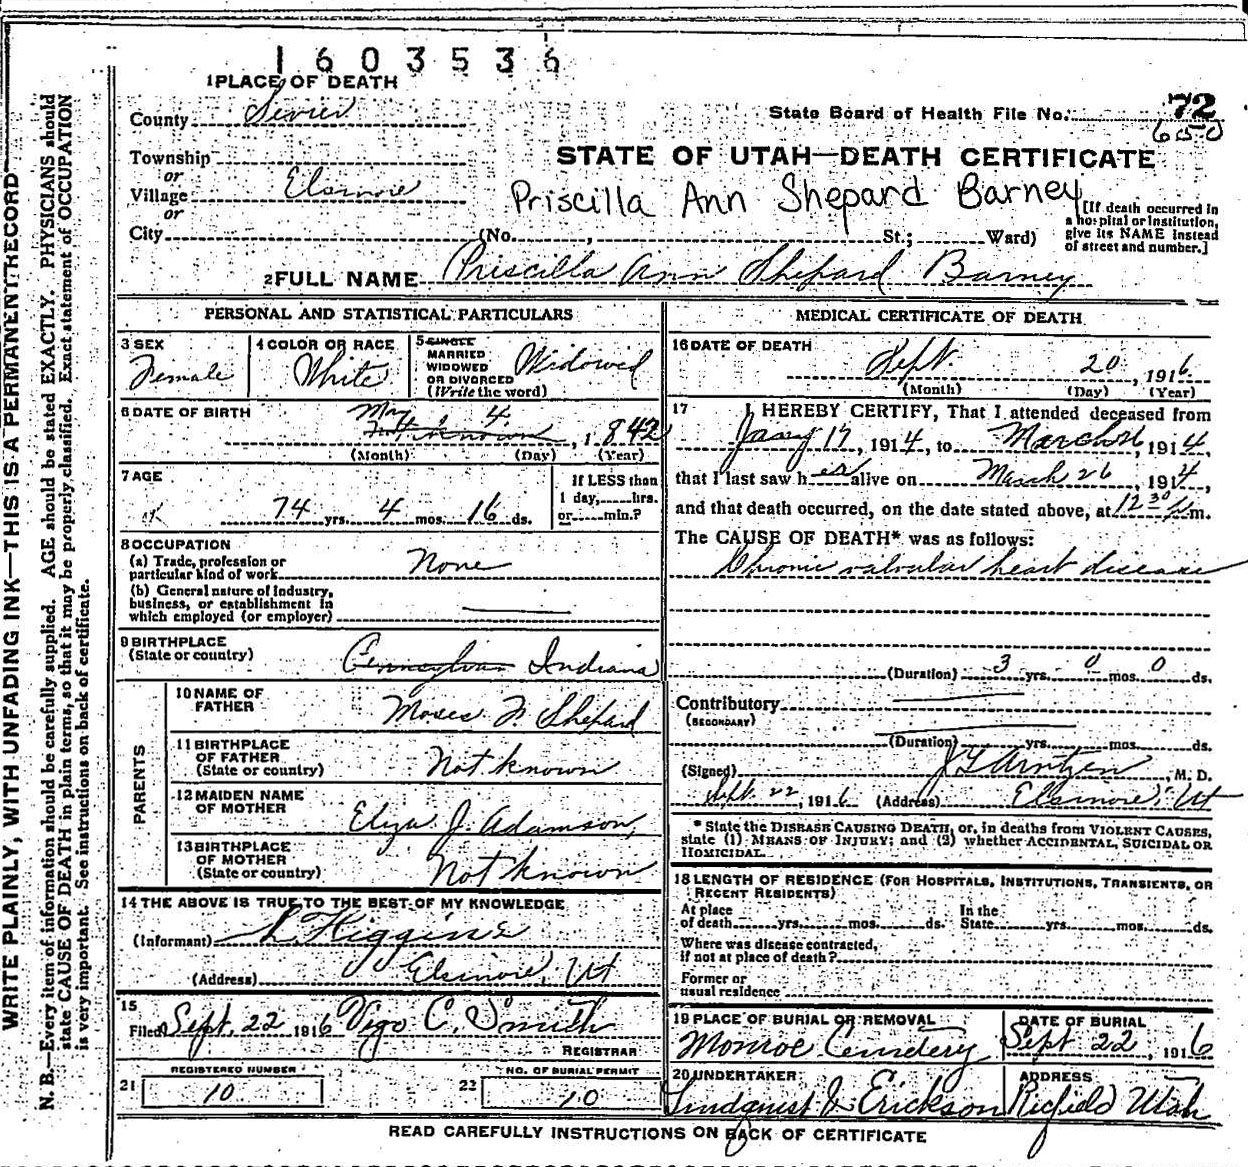 1603536
1 PLACE OF DEATH
County Sevier
State Board of Health File No. 72
650
Township
or
Village Elsinore
or
City (No. , St.; Ward)
STATE OF UTAH—DEATH CERTIFICATE
Priscilla Ann Shepard Barney
[If death occurred in
a hospital or institution,
give its NAME instead
of street and number.]
2 FULL NAME Priscilla Ann Shepard Barney
PERSONAL AND STATISTICAL PARTICULARS
3 SEX
Female
4 COLOR OR RACE
White
5 SINGLE
MARRIED
WIDOWED
OR DIVORCED
(Write the word)
Widowed
6 DATE OF BIRTH
May 4
Not known , 1842
(Month) (Day) (Year)
7 AGE
74 yrs. 4 mos. 16 ds.
If LESS than
1 day, hrs.
or min.?
8 OCCUPATION
(a) Trade, profession or
particular kind of work None
(b) General nature of industry,
business, or establishment in
which employed (or employer)
9 BIRTHPLACE
(State or country) Indiana
PARENTS
10 NAME OF
FATHER Moses F Shepard
11 BIRTHPLACE
OF FATHER
(State or country) Not known
12 MAIDEN NAME
OF MOTHER Eliza J. Adamson,
13 BIRTHPLACE
OF MOTHER
(State or country) Not known
14 THE ABOVE IS TRUE TO THE BEST OF MY KNOWLEDGE
(Informant) Higgins
(Address) Elsinore, Ut
15
Filed Sept. 22 1916 Vigo C. Smith
REGISTRAR
REGISTERED NUMBER
21 10
NO. OF BURIAL PERMIT
22 10
MEDICAL CERTIFICATE OF DEATH
16 DATE OF DEATH
Sept. 20 , 1916
(Month) (Day) (Year)
17 I HEREBY CERTIFY, That I attended deceased from
17, 1914, to March 26, 1914,
that I last saw her alive on March 26, 1914,
and that death occurred, on the date stated above, at 12 30 m.
The CAUSE OF DEATH* was as follows:
Chronic valvular heart disease
(Duration) 3 yrs. 0 mos. 0 ds.
Contributory
(SECONDARY)
(Duration) yrs. mos. ds.
(Signed) , M. D.
Sept. 22, 1916 (Address) Elsinore, Ut
* State the DISEASE CAUSING DEATH, or, in deaths from VIOLENT CAUSES,
state (1) MEANS OF INJURY; and (2) whether ACCIDENTAL, SUICIDAL OR
HOMICIDAL.
18 LENGTH OF RESIDENCE (FOR HOSPITALS, INSTITUTIONS, TRANSIENTS, OR
RECENT RESIDENTS)
At place
of death yrs. mos. ds.
In the
State yrs. mos. ds.
Where was disease contracted,
if not at place of death?
Former or
usual residence
19 PLACE OF BURIAL OR REMOVAL
Monroe Cemetery
DATE OF BURIAL
Sept 22, 1916
20 UNDERTAKER
Lindquist J Erickson
ADDRESS
Richfield Utah
READ CAREFULLY INSTRUCTIONS ON BACK OF CERTIFICATE
WRITE PLAINLY, WITH UNFADING INK—THIS IS A PERMANENT RECORD
N. B.—Every item of information should be carefully supplied. AGE should be stated EXACTLY. PHYSICIANS should
state CAUSE OF DEATH in plain terms, so that it may be properly classified. Exact statement of OCCUPATION
is very important. See instructions on back of certificate.